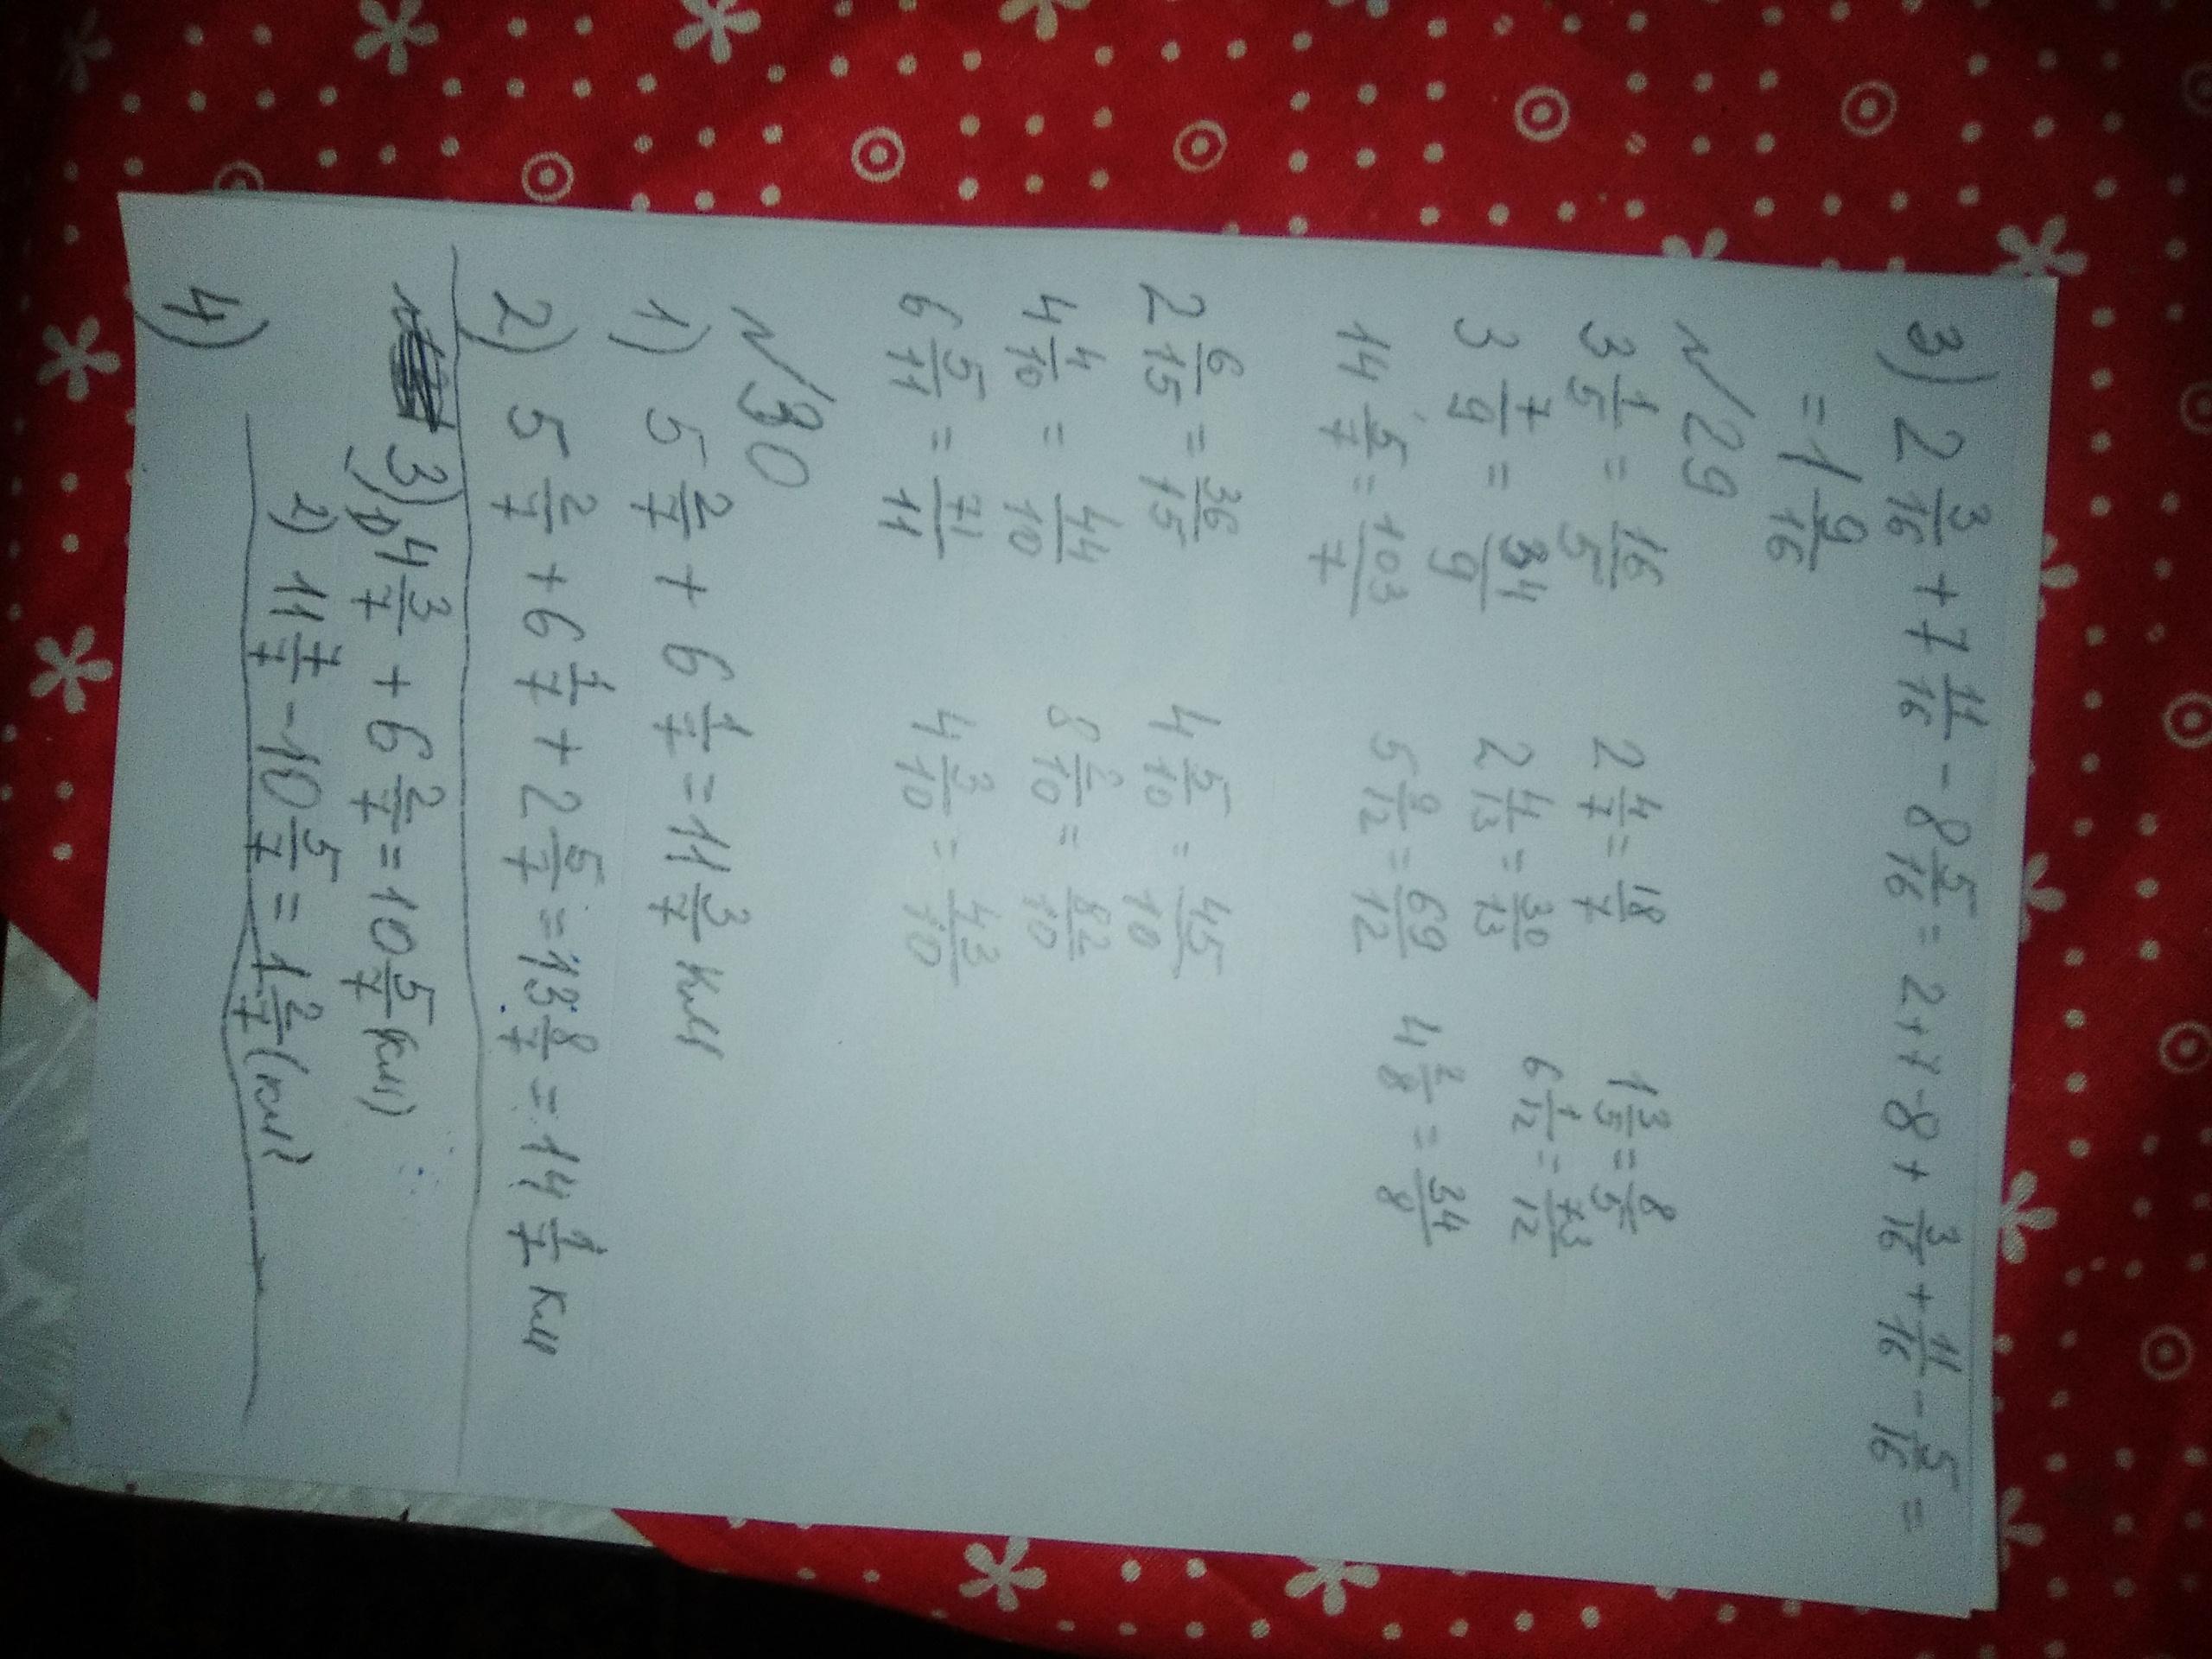 3) 2 3/16 + 7 11/16 - 8 5/16 = 2+7-8+ 3/16 + 11/16 - 5/16 =
= 1 9/16
N 29
3 1/5 = 16/5 2 4/7 = 18/7 1 3/5 = 8/5
3 7/9 = 34/9 2 4/13 = 30/13 6 1/12 = 73/12
14 5/7 = 103/7 5 9/12 = 69/12 4 2/8 = 34/8
2 6/15 = 36/15 4 5/10 = 45/10
4 4/10 = 44/10 8 2/10 = 82/10
6 5/11 = 71/11 4 3/10 = 43/10
N 30
1) 5 2/7 + 6 1/7 = 11 3/7 км
2) 5 2/7 + 6 1/7 + 2 5/7 = 13 8/7 = 14 1/7 км
3) 1) 4 3/7 + 6 2/7 = 10 5/7 (км)
2) 11 7/7 - 10 5/7 = 1 2/7 (км)
4)